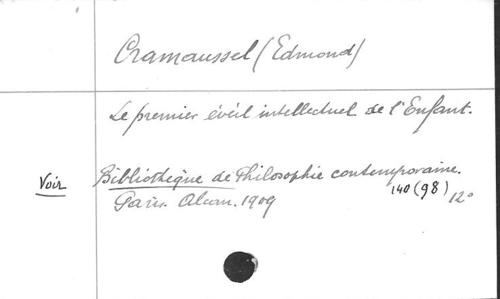 Cramaussel (Edmond)
Le premier éveil intellectuel de l'Enfant.
Voir Bibliothèque de Philosophie contemporaine.
Paris. Alcan. 1909 140 (98) 12°